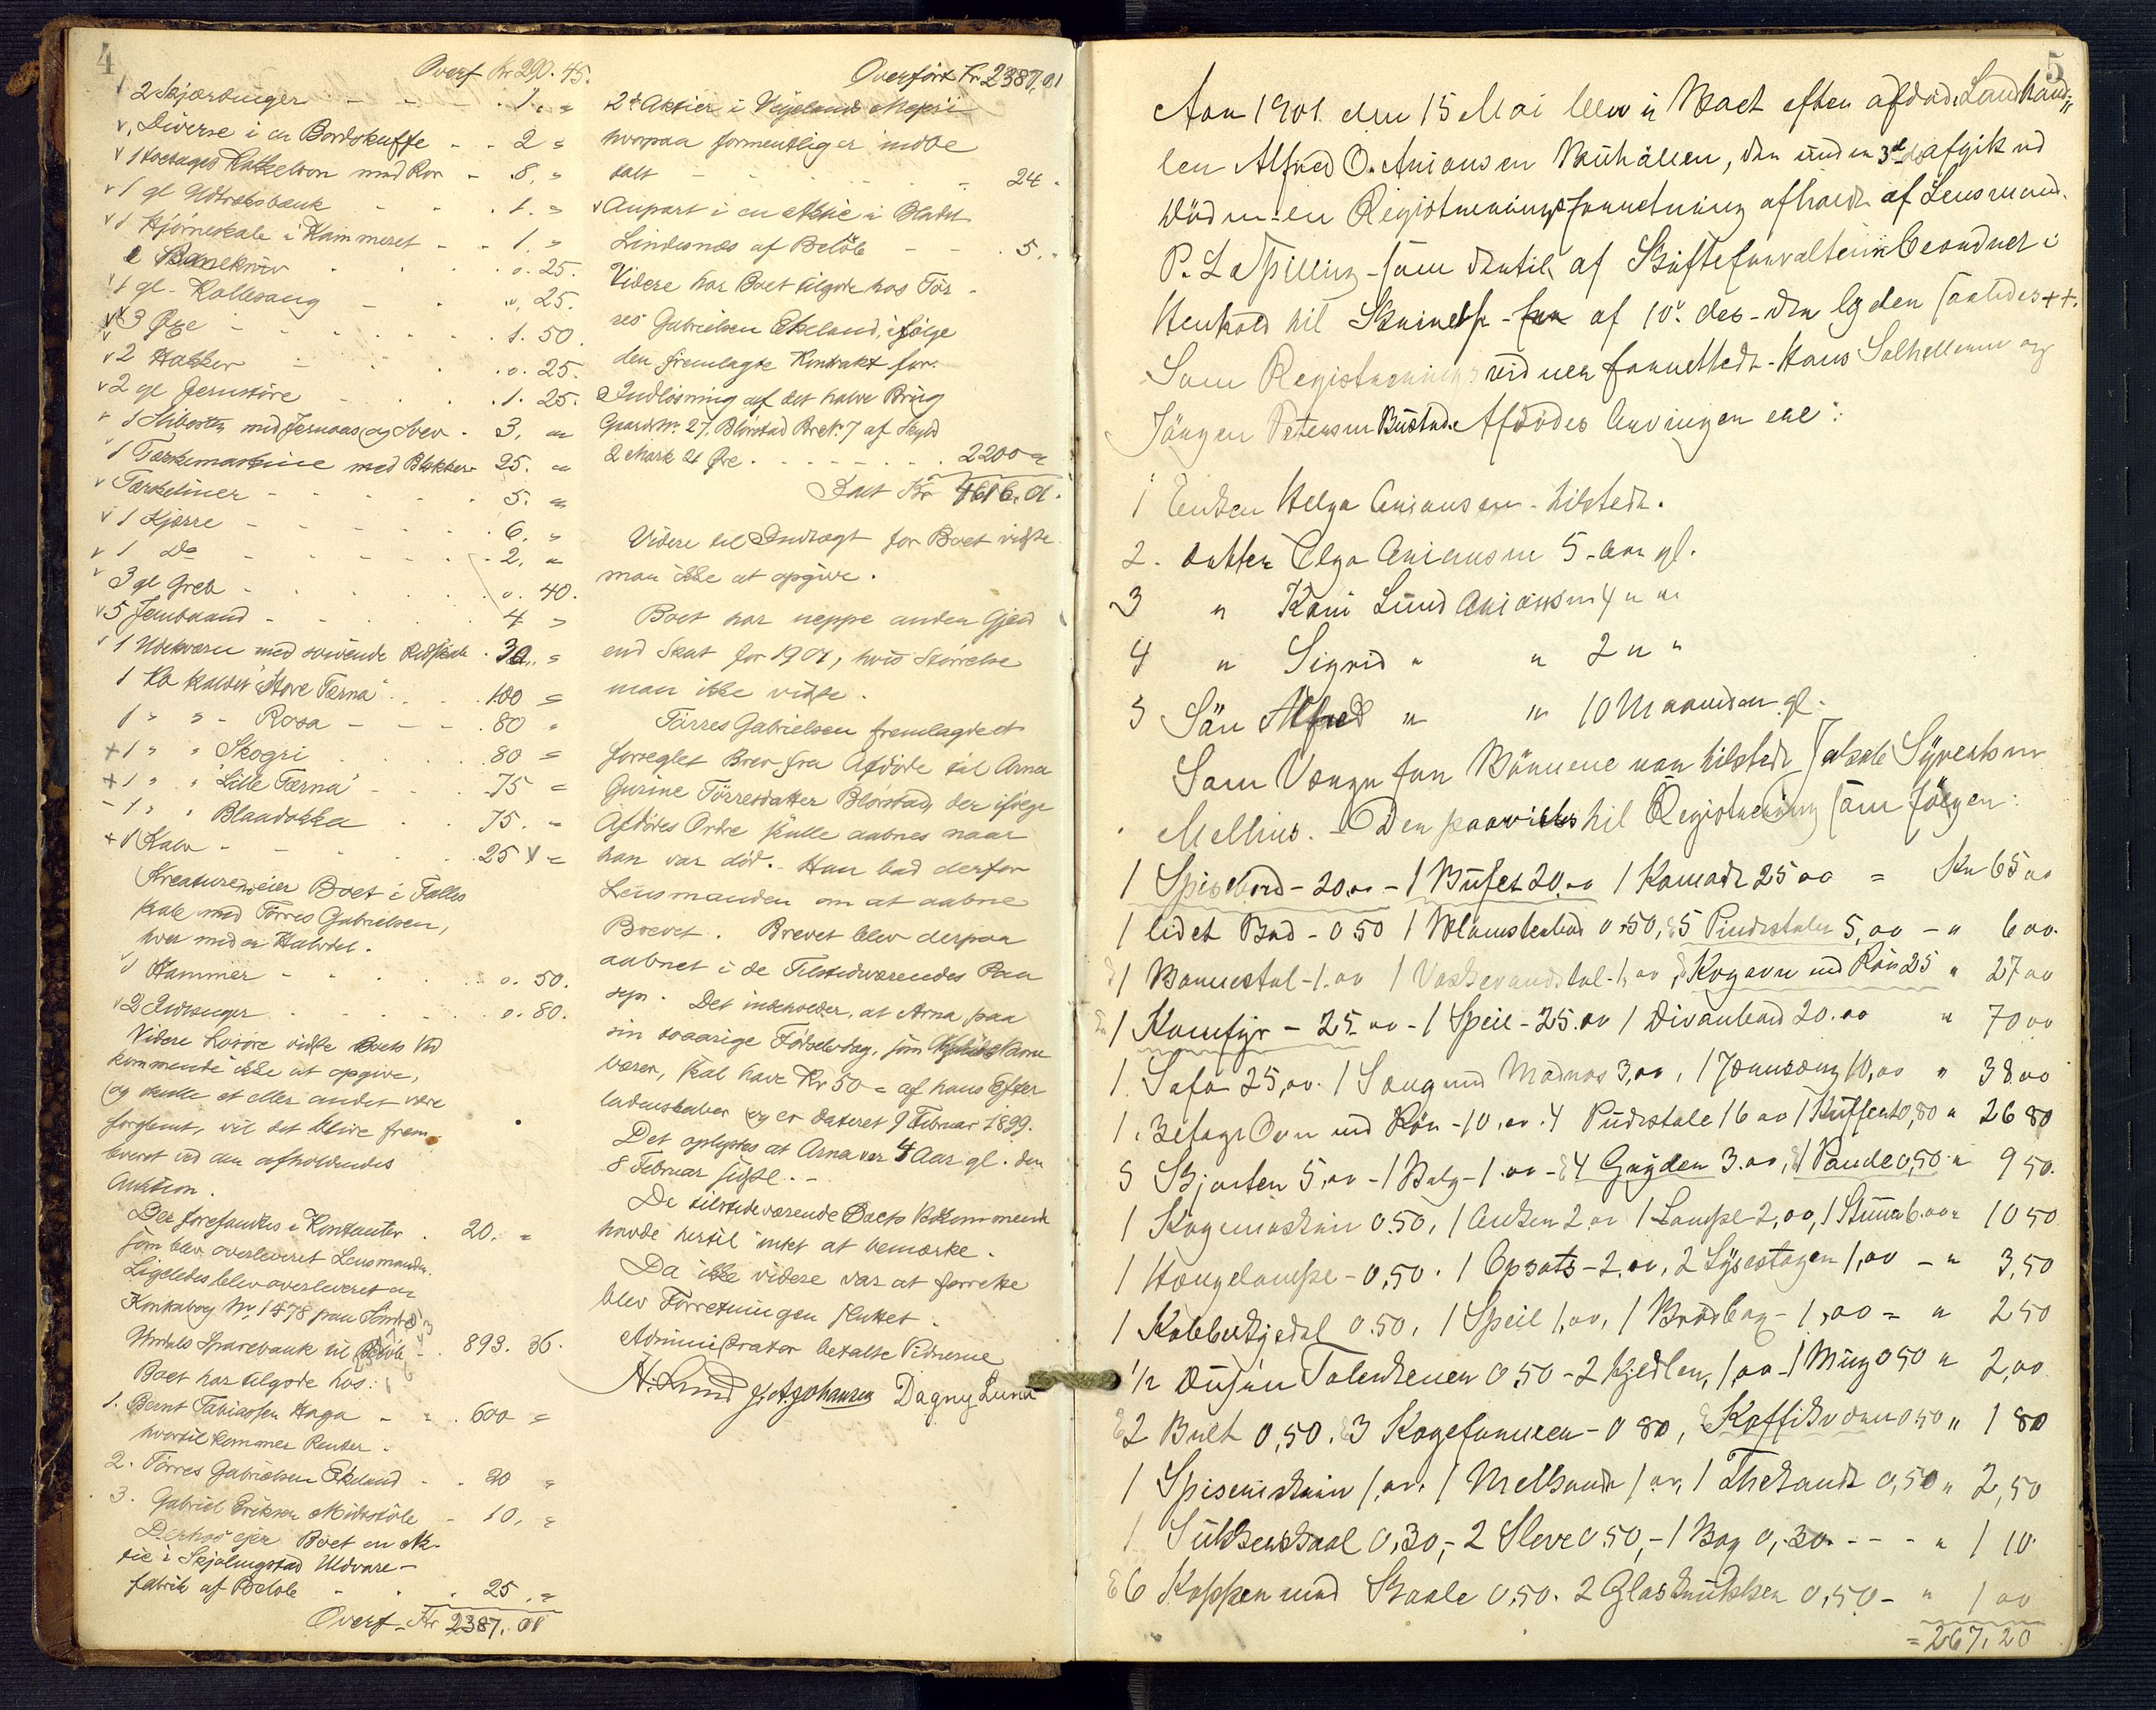 4
Overf Kr 290. 45.
2 Skjærdinger - - - 1. "
Diverse i en Bordskuffe - - 2 "
1 toetages Kakkelovn med Rør - 8. "
1 gl Udtræksbænk - - 1. "
1 Hjørneskab i Kammeret - - 1. "
0. 25.
1 gl. Rollesang - - 0, 25.
3 Øxe - - - 1. 50.
2 Hakker - - 0. 25.
2 gl Jernstöre - - 1. 25.
1 Slibesten med Jernaas og Svev - 3. "
1 Tærskemaskine med Blokker - 25. "
Tærskeliner - - - 5. "
1 Kjærre - - - 6. "
1 Do - - - 2. "
3 gl Greb - - - 0. 40.
5 Jernbaand - - - 4 "
1 Ildkværn med svivende Redskab - 30. "
1 Ko kaldet "Store Tærna" - - 100 "
1 " " - Rosa - - - 80 "
+ 1 " " Skogri - - - 80 "
+ 1 " " "Lille Tærna" - - 75 "
- 1 " " Blaadokka - - 75. "
+ 1 Kalv - - - 25 "
Kreaturene eier Boet i Fælles
skab med Tørres Gabrielsen,
hver med en Halvdel.
1 Hammer - - - 0. 50.
2 - - - 0. 80.
Videre Løsöre vidste Boets Ved
kommende ikke at opgive,
og skulle et eller andet være
forglemt, vil det blive frem-
leveret ved den afholdendes
Auktion.
Der forefandtes i Kontanter - 20. "
som blev overleveret Lensmanden.
Ligeledes blev overleveret en
Kontrabog No. 1478 paa Søndre
Undals Sparebank til Beløb - 893. 36.
Boet har tilgode hos:
1. Bernt Tobiassen Haga - - 600 "
hvortil kommer Renter.
2. Tørres Gabrielsen Ekeland - - 20 "
3. Gabriel Eriksen Midtstöle - 10. "
Derhos ejer Boet en Ak-
tie i Skjolingstad Uldvare-
fabrik af Beløb - - - 25. "
Overf. Kr 2387. 01
Overført Kr. 2387,01
2de Aktier i Vejelands Mejeri
hvorpaa formentlig er indbe
talt - - - 24 "
Anpart i en Aktie i Bladet
Lindesnæs af Beløb - - 5. "
Videre har Boet tilgode hos Tör-
res Gabrielsen Ekeland, ifölge
den fremlagte Kontrakt for
Indløsning af det halve Brug
Gaards No. 27, Blørstad Br. No. 7 af Skyld
2 Mark 21 Øre - - - 2200 "
Ialt Kr 4616. 01.
Videre til Indtægt for Boet vidste
man ikke at opgive.
Boet har neppe anden Gjæld
end Skat for 1901, hvis Størrelse
man ikke vidste.
Törres Gabrielsen fremlagde et
forseglet Brev fra Afdøde til Arna
Gurine Törresdatter Blørstad, der ifölge
Afdödes Ordre skulle aabnes naar
han var död. Han bad derfor
Lensmanden om at aabne
Brevet. Brevet blev derpaa
aabnet i de Tilstedeværendes Paa
syn. Det indeholder, at Arna paa
sin toaarige Födselsdag, som
bærer, skal have Kr 50 = af hans Efter
ladenskaber og er dateret 9 Februar 1899.
Det oplystes at Arna var 4 Aar gl. den
8 Februar sidst.-
De tilstedeværende Boets Vedkommende
havde hertil intet at bemærke.
Da ikke videre var at forrette
blev Forretningen sluttet.
Administrator betalte Vidnerne
A. Lund J. A. Johansen Dagny Lund
5
Aar 1901 den 15 Mai blev i Boet efter afdøde Landhand-
ler Alfred O. Aniansen Buhälleren, der under 3de ds afgik ved
Döden en Registreringsforretning afholdt af Lensmand
P. L. Spilling - som dertil af Skifteforvalteren beordret i
Henhold til Skrivelse - af 10de ds - den lyder saaledes ++.
Som Registreringsvidner forrettede - Hans Salhellerem og
Jörgen Petersen Bustad. Afdödes Arvinger ere:
1 Enken Helga Aniansen - tilstede.
2. Datter Olga Aniansen 5 - Aar gl.
3 " Kari Lund Aniansen 4 " "
4 " Sigrid " " 2 " "
5 Sön Alfred " " 10 Maaneder gl.
Som Værge for Börnene var tilstede Jakob Syvertsen
Mellius. - Der paavistes til Registrering som fölger:
1 Spisebord - 20.00 - 1 Bufet 20.00 1 Komode 25 00 = Kr 65 00
1 lidet Bord - 0.50 1 Blomsterbord 0.50, 5 Pindestoler 5,00 - " 6 00.
1 Barnestol - 1.00 1 Vaskevandstol - 1,00, 1 Kogeovn med Rör 25 " 27 00
1 Komfyr - 25.00 - 1 Speil - 25.00 1 Divanbord 20.00 " 70 00
1 Sofa 25,00. 1 Seng med Madras 3,00, 1 Jernseng 10,00 " 38 00
1. 3etages Ovn med Rör - 10.00. 4 Pindestole 16 00 1 Kuffert 0,80 " 26 80
5 Skjorter 5,00 - 1 Bælg - 1.00 - 4 Gryder 3.00, 1 Pande 0,50 " 9 50.
1 Kogemaskin 0.50, 1 Anker 2,00 1 Lampe 2,00, 1 Stuur 6.00 " 10 50
1 Hængelampe - 0,50. 1 Opsats - 2.00, 2 Lysestager 1,00 - " 3,50
1 Kobberkjedel 0.50, 1 Speil 1,00, 1 Brödbag - 1,00 = " 2 50
1/2 Dusin Talerkener 0,50 - 2 Kjedler, 1,00 - 1 Mug 0 50 " 2,00
2 Bret 0,50. 3 Kageformer - 0 80, Kaffikværn 0 50 " 1 80
1 Spisemaskin 1,00. 1 Melkande 1,00, 1 Thekande 0,50 " 2,50
1 Sukkerskaal 0,30, - 2 Sleve 0.50, - 1 Bag 0,30. - - - " 1 10
6 Kopper med Skaale 0,50. 2 Glaskrukker 0,50 - " 1 00
= 267,20